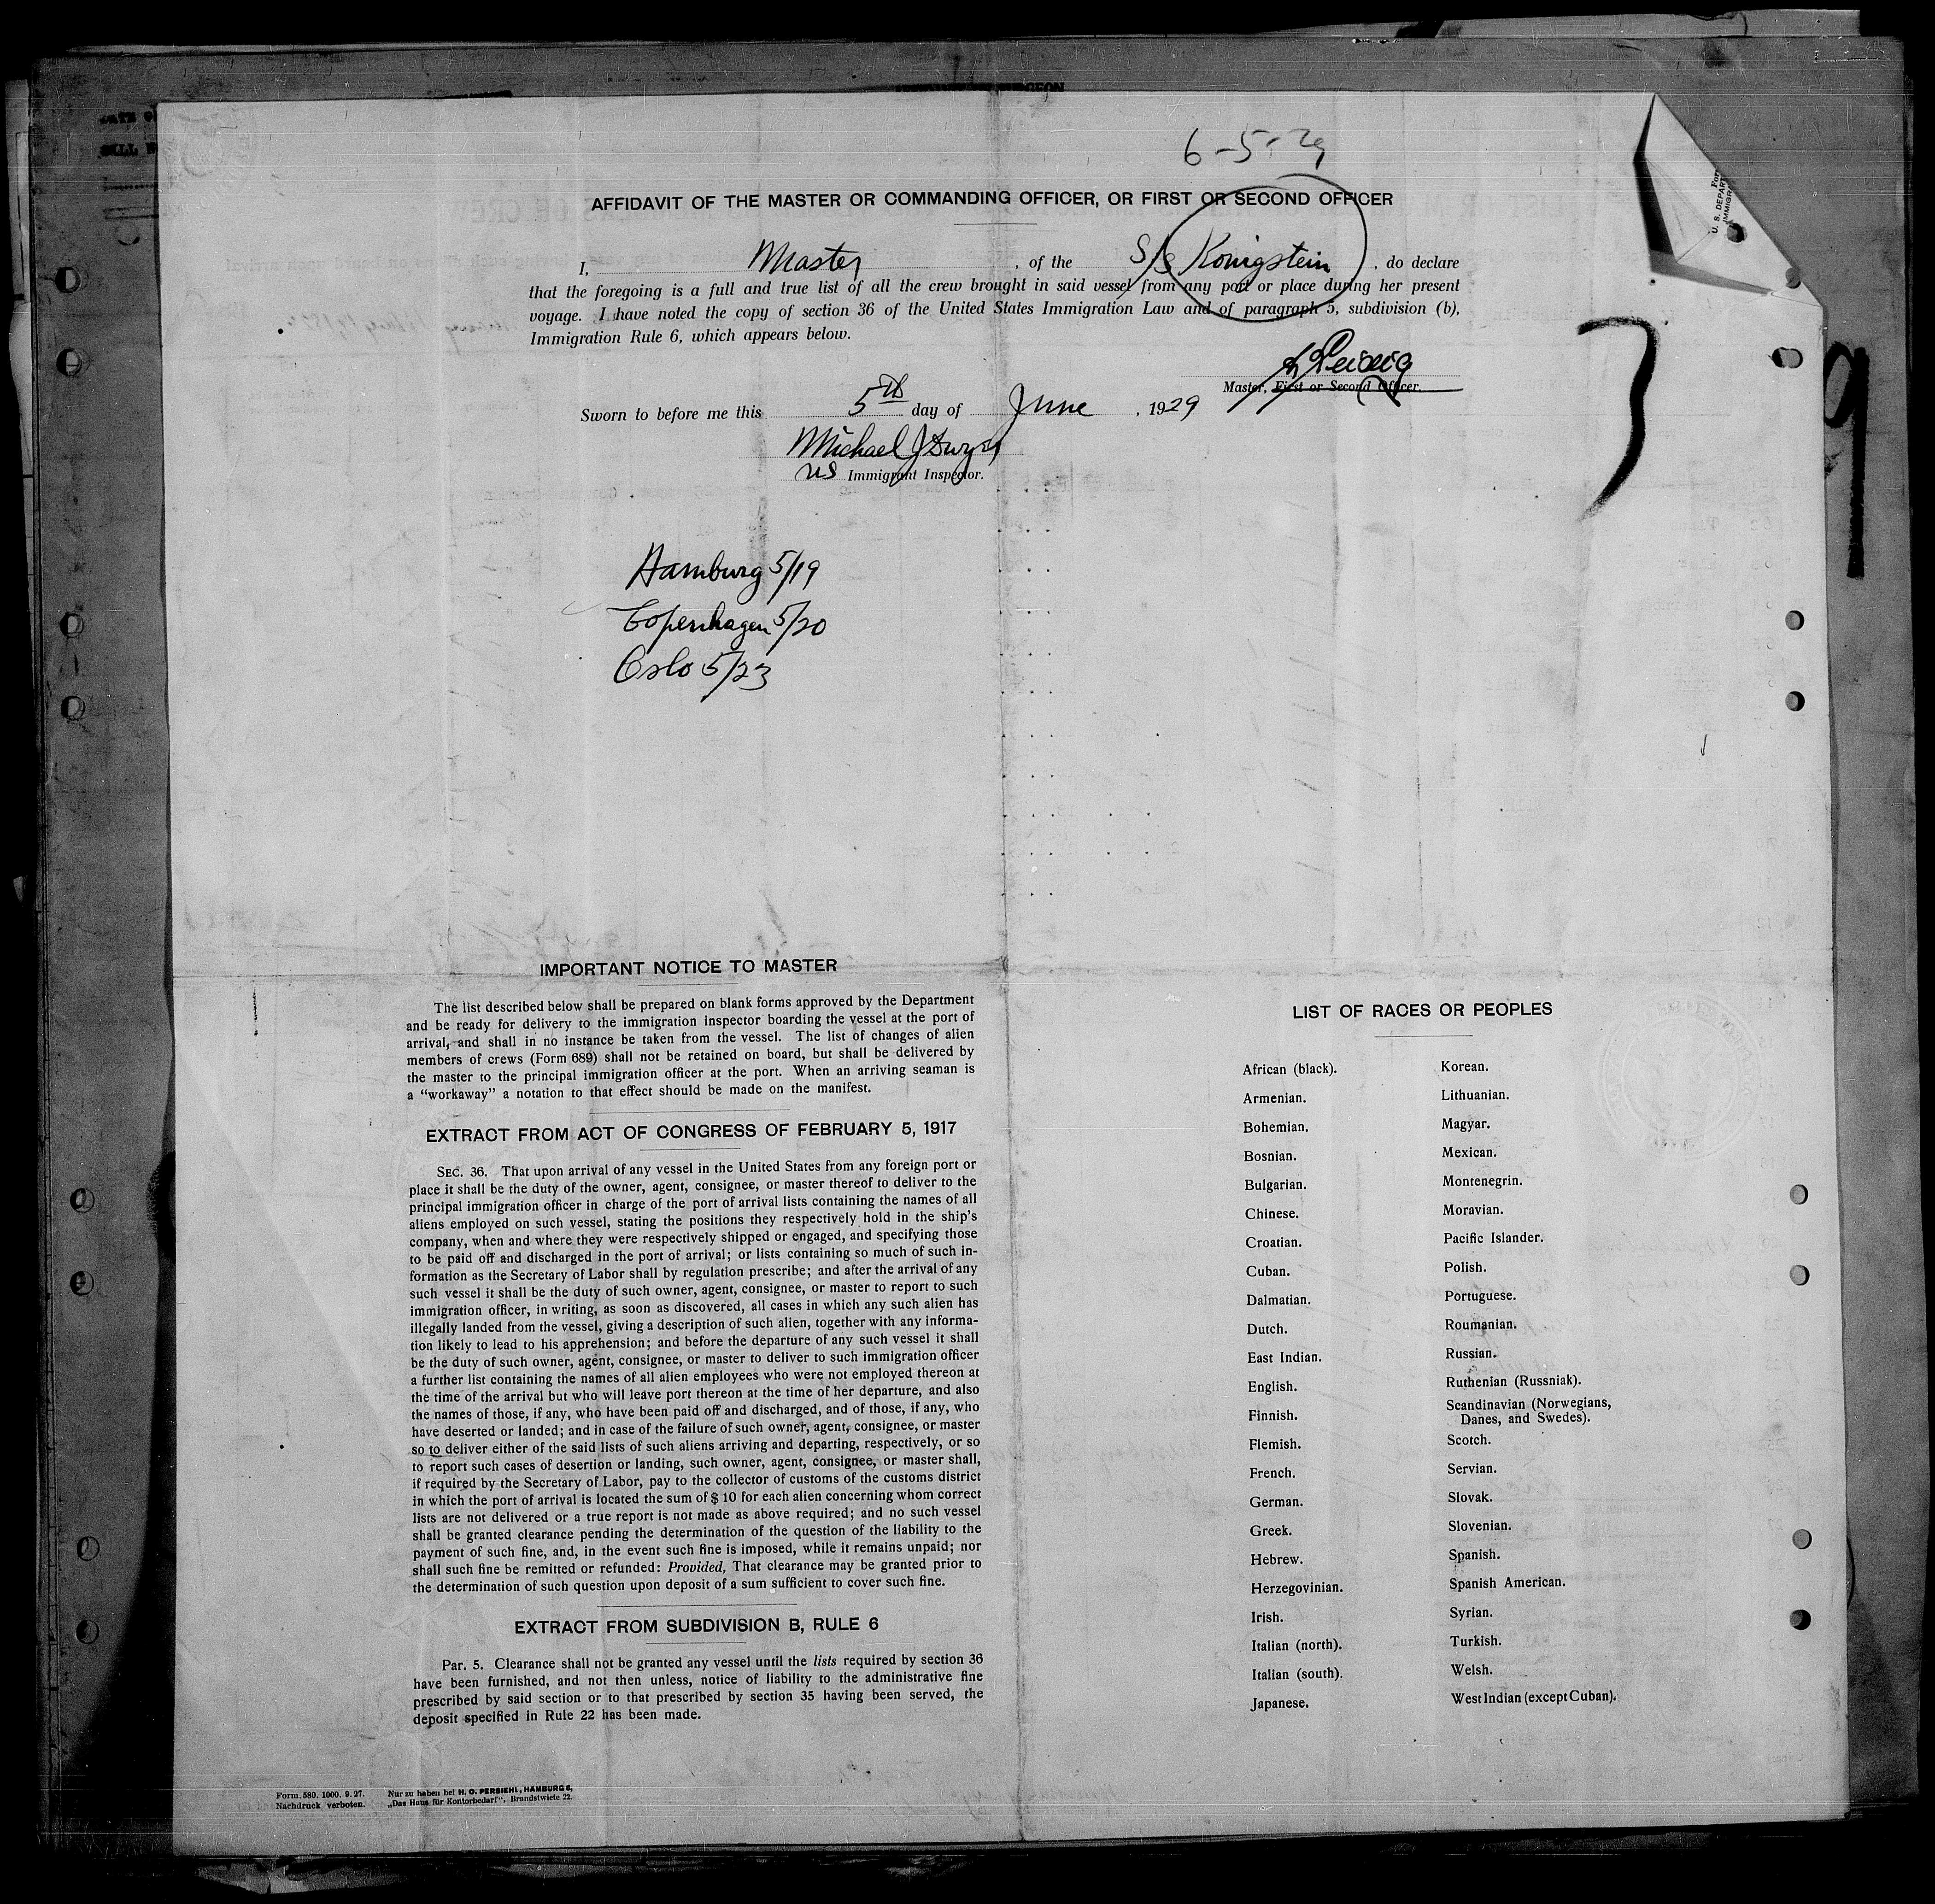 6-5-29
AFFIDAVIT OF THE MASTER OR COMMANDING OFFICER, OR FIRST OR SECOND OFFICER
I, Master, of the S/S Königstein, do declare
that the foregoing is a full and true list of all the crew brought in said vessel from any port or place during her present
voyage. I have noted the copy of section 36 of the United States Immigration Law and of paragraph 5, subdivision (b),
Immigration Rule 6, which appears below.
Master, First or Second Officer.
Sworn to before me this 5th day of June, 1929
Michael J Dwyer
US Immigrant Inspector.
Hamburg 5/19
Copenhagen 5/20
Oslo 5/23
IMPORTANT NOTICE TO MASTER
The list described below shall be prepared on blank forms approved by the Department
and be ready for delivery to the immigration inspector boarding the vessel at the port of
arrival, and shall in no instance be taken from the vessel. The list of changes of alien
members of crews (Form 689) shall not be retained on board, but shall be delivered by
the master to the principal immigration officer at the port. When an arriving seaman is
a “workaway” a notation to that effect should be made on the manifest.
EXTRACT FROM ACT OF CONGRESS OF FEBRUARY 5, 1917
SEC. 36. That upon arrival of any vessel in the United States from any foreign port or
place it shall be the duty of the owner, agent, consignee, or master thereof to deliver to the
principal immigration officer in charge of the port of arrival lists containing the names of all
aliens employed on such vessel, stating the positions they respectively hold in the ship's
company, when and where they were respectively shipped or engaged, and specifying those
to be paid off and discharged in the port of arrival; or lists containing so much of such in-
formation as the Secretary of Labor shall by regulation prescribe; and after the arrival of any
such vessel it shall be the duty of such owner, agent, consignee, or master to report to such
immigration officer, in writing, as soon as discovered, all cases in which any such alien has
illegally landed from the vessel, giving a description of such alien, together with any informa-
tion likely to lead to his apprehension; and before the departure of any such vessel it shall
be the duty of such owner, agent, consignee, or master to deliver to such immigration officer
a further list containing the names of all alien employees who were not employed thereon at
the time of the arrival but who will leave port thereon at the time of her departure, and also
the names of those, if any, who have been paid off and discharged, and of those, if any, who
have deserted or landed; and in case of the failure of such owner, agent, consignee, or master
so to deliver either of the said lists of such aliens arriving and departing, respectively, or so
to report such cases of desertion or landing, such owner, agent, consignee, or master shall,
if required by the Secretary of Labor, pay to the collector of customs of the customs district
in which the port of arrival is located the sum of $ 10 for each alien concerning whom correct
lists are not delivered or a true report is not made as above required; and no such vessel
shall be granted clearance pending the determination of the question of the liability to the
payment of such fine, and, in the event such fine is imposed, while it remains unpaid; nor
shall such fine be remitted or refunded: Provided, That clearance may be granted prior to
the determination of such question upon deposit of a sum sufficient to cover such fine.
EXTRACT FROM SUBDIVISION B, RULE 6
Par. 5. Clearance shall not be granted any vessel until the lists required by section 36
have been furnished, and not then unless, notice of liability to the administrative fine
prescribed by said section or to that prescribed by section 35 having been served, the
deposit specified in Rule 22 has been made.
LIST OF RACES OR PEOPLES
African (black).
Armenian.
Bohemian.
Bosnian.
Bulgarian.
Chinese.
Croatian.
Cuban.
Dalmatian.
Dutch.
East Indian.
English.
Finnish.
Flemish.
French.
German.
Greek.
Hebrew.
Herzegovinian.
Irish.
Italian (north).
Italian (south).
Japanese.
Korean.
Lithuanian.
Magyar.
Mexican.
Montenegrin.
Moravian.
Pacific Islander.
Polish.
Portuguese.
Roumanian.
Russian.
Ruthenian (Russniak).
Scandinavian (Norwegians,
Danes, and Swedes).
Scotch.
Servian.
Slovak.
Slovenian.
Spanish.
Spanish American.
Syrian.
Turkish.
Welsh.
West Indian (except Cuban).
Form. 580. 1000. 9. 27.
Nachdruck verboten.
Nur zu haben bei H. O. PERSIEHL, HAMBURG 8,
„Das Haus für Kontorbedarf“, Brandstwiete 22.